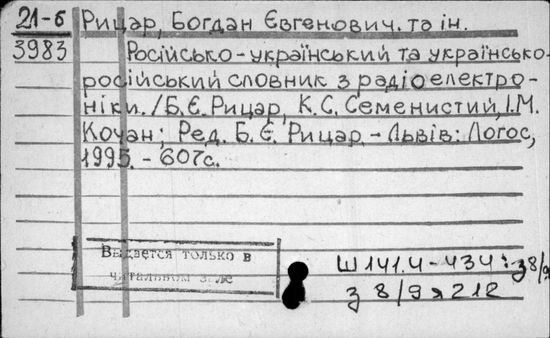 21-б Рицар, Богдан Євгенович. та ін.
3983 Російсько-український та українсько-
російський словник з радіоелектро-
ніки. /Б.Є. Рицар, К.С. Семенистий, І.М.
Кочан; Ред. Б.Є. Рицар. - Львів: Логос,
1995. - 607с.
Выдается только в
читальном зале
Ш141.4-434:з8/9
з 8/9 я212